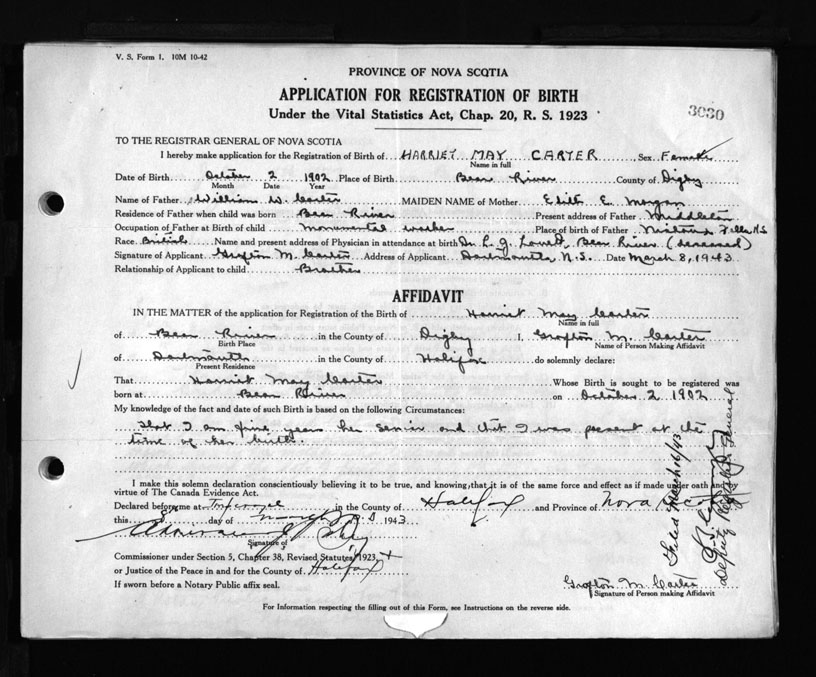 V. S. Form 1. 10M 10-42
PROVINCE OF NOVA SCOTIA
APPLICATION FOR REGISTRATION OF BIRTH
Under the Vital Statistics Act, Chap. 20, R. S. 1923
3030
TO THE REGISTRAR GENERAL OF NOVA SCOTIA
I hereby make application for the Registration of Birth of HARRIET MAY CARTER, Sex Female
Name in full
Date of Birth October 2 1902 Place of Birth Bear River County of Digby
Month Date Year
Name of Father William W. Carter MAIDEN NAME of Mother Edith E. Morgan
Residence of Father when child was born Bear River Present address of Father Middleton
Occupation of Father at Birth of child Monumental worker Place of birth of Father Nictaux Falls N.S
Race British Name and present address of Physician in attendance at birth Dr. L. J. Lovett, Bear River (deceased)
Signature of Applicant Grafton M. Carter Address of Applicant Dartmouth, N.S. Date March 8, 1943
Relationship of Applicant to child Brother
AFFIDAVIT
IN THE MATTER of the application for Registration of the Birth of Harriet May Carter
Name in full
of Bear River in the County of Digby I, Grafton M. Carter
Birth Place Name of Person Making Affidavit
of Dartmouth in the County of Halifax do solemnly declare:
Present Residence
That Harriet May Carter Whose Birth is sought to be registered was
born at Bear River on October 2 1902
My knowledge of the fact and date of such Birth is based on the following Circumstances:
That I am five years her senior and that I was present at the
time of her birth.
I make this solemn declaration conscientiously believing it to be true, and knowing that it is of the same force and effect as if made under oath and
virtue of The Canada Evidence Act.
Declared before me at in the County of Halifax and Province of Nova Scotia
this day of March A.D. 1943
Signature of
Commissioner under Section 5, Chapter 38, Revised Statutes 1923,
or Justice of the Peace in and for the County of Halifax
If sworn before a Notary Public affix seal.
Grafton M. Carter
Signature of Person making Affidavit
Filed March 16/43
Deputy Registrar General
For Information respecting the filling out of this Form, see Instructions on the reverse side.